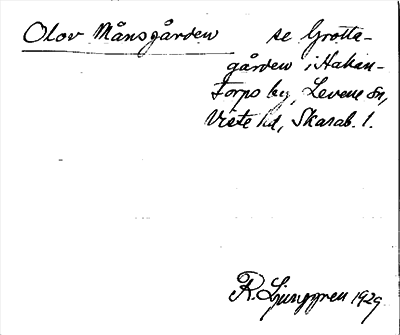 Olov Månsgården se Grotta-
gården i Hakan-
torps by, Levene sn,
Viste hd, Skarab. l.
R. Ljunggren 1929